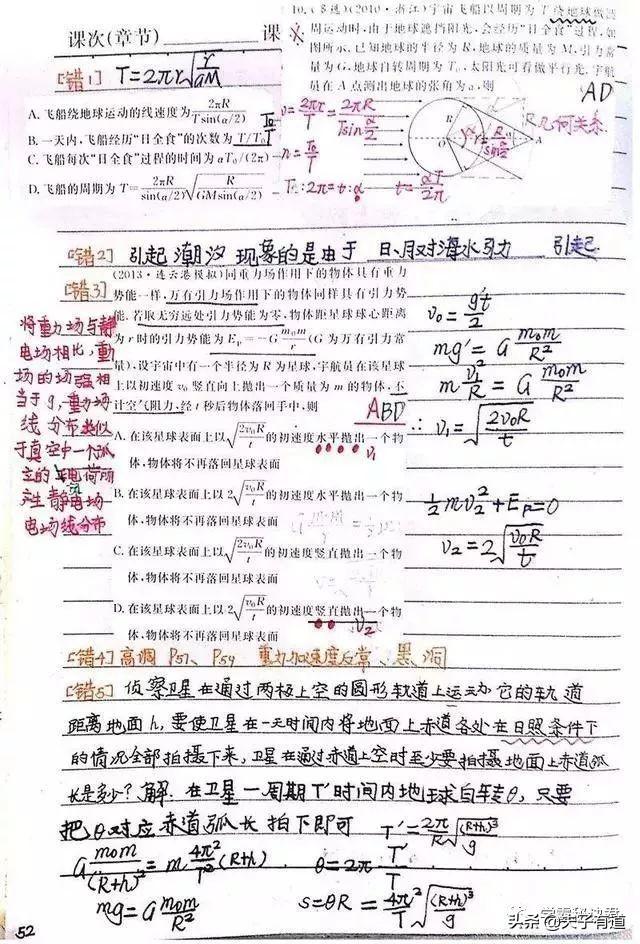 课次(章节)
课
[错1] T=2πr√(r/GM)
10.(多选)(2010·浙江)宇宙飞船以周期为T绕地球做圆
周运动时,由于地球遮挡阳光,会经历“日全食”过程,如
图所示.已知地球的半径为R,地球的质量为M,引力常
量为G,地球自转周期为T₀,太阳光可看做平行光,宇航
员在A点测出地球的张角为α,则
AD
A. 飞船绕地球运动的线速度为2πR/(Tsin(α/2))
B. 一天内,飞船经历“日全食”的次数为T/T₀
C. 飞船每次“日全食”过程的时间为αT₀/(2π)
D. 飞船的周期为T=2πR/sin(α/2)√(R/(GMsin(α/2)))
v=2πr/T=2πR/(Tsin α/2)
n=T₀/T
T:2π=t:α t=αT/2π
R
O
A
α
r=R/sin α/2
几何关系
[错2] 引起潮汐现象的是由于 日、月对海水引力 引起
[错3]
(2013·连云港模拟)同重力场作用下的物体具有重力
势能一样,万有引力场作用下的物体同样具有引力势
能.若取无穷远处引力势能为零,物体距星球球心距离
为r时的引力势能为Eₚ=-G m₀m/r(G为万有引力常
量),设宇宙中有一个半径为R为星球,宇航员在该星球
上以初速度v₀竖直向上抛出一个质量为m的物体,不
计空气阻力,经t秒后物体落回手中,则
ABD
A. 在该星球表面上以√(2v₀R/t)的初速度水平抛出一个物
体,物体将不再落回星球表面
v₁
B. 在该星球表面上以2√(v₀R/t)的初速度水平抛出一个物
体,物体将不再落回星球表面
C. 在该星球表面上以√(2v₀R/t)的初速度竖直抛出一个物
体,物体将不再落回星球表面
D. 在该星球表面上以2√(v₀R/t)的初速度竖直抛出一个物
体,物体将不再落回星球表面
v₂
将重力场与静
电场相比,重力
场的场强相
当于g,重力场
线分布类似
于真空中一个孤
立的
电荷所
产生静电场
电场线分布
v₀=g't/2
mg'=G m₀m/R²
m v₁²/R=G m₀m/R²
∴ v₁=√(2v₀R/t)
½mv₂²+Eₚ=0
v₂=2√(v₀R/t)
[错4] 高调 P57、P59 重力加速度反常、黑洞
[错5] 侦察卫星在通过两极上空的圆形轨道上运动,它的轨道
距离地面h,要使卫星在一天时间内将地面上赤道各处在日照条件下
的情况全部拍摄下来,卫星在通过赤道上空时至少要拍摄地面上赤道弧
长是多少? 解: 在卫星一周期T'时间内地球自转θ,只要
把θ对应赤道弧长拍下即可 T'=2π/R√((R+h)³/g)
G m₀m/(R+h)²=m 4π²/T'²(R+h) θ=2π T'/T
mg=G m₀m/R² s=θR=4π²/T√((R+h)³/g)
52
头条@夫子有道